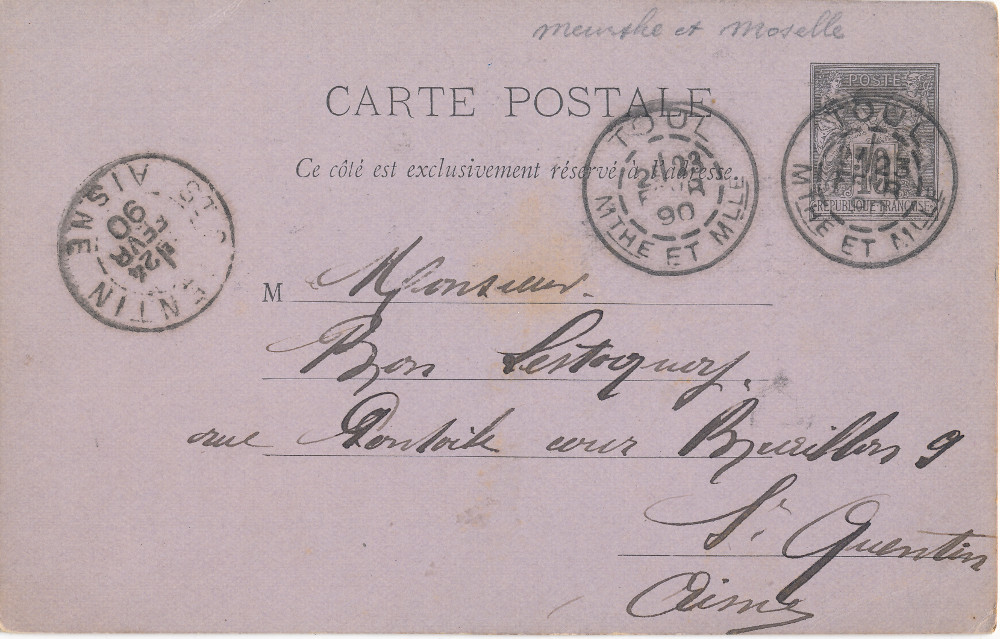 meurthe et moselle
CARTE POSTALE
Ce côté est exclusivement réservé à l'adresse.
POSTE
REPUBLIQUE FRANÇAISE
TOUL
23
FEVR
90
MTHE ET MLLE
TOUL
MTHE ET MLLE
ST QUENTIN
24
FEVR
90
AISNE
M Monsieur
Lestocquoy.
rue Pontoile cour 9
St Quentin
Aisne